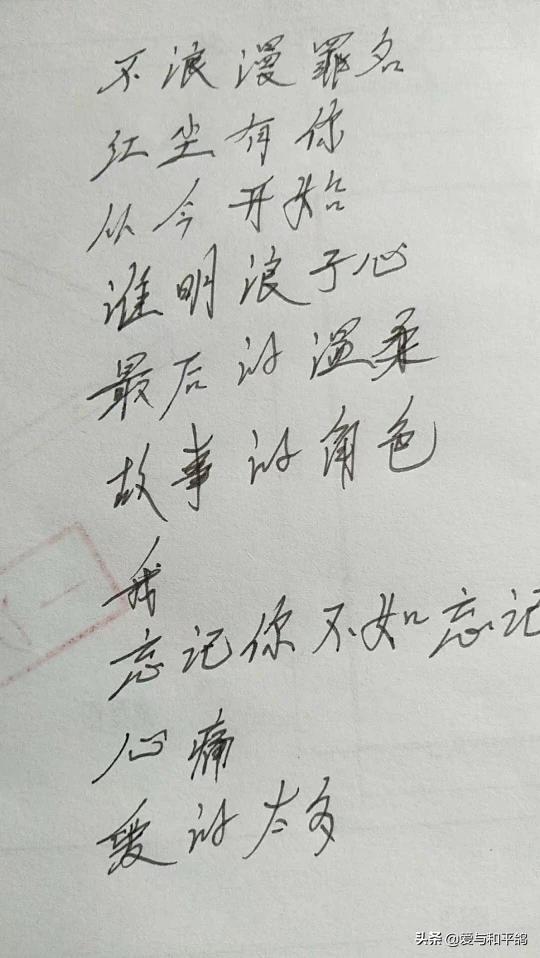 不浪漫罪名
红尘有你
从今开始
谁明浪子心
最后的温柔
故事的角色
我
忘记你不如忘记
心痛
爱的太多
头条 @爱与和平鸽